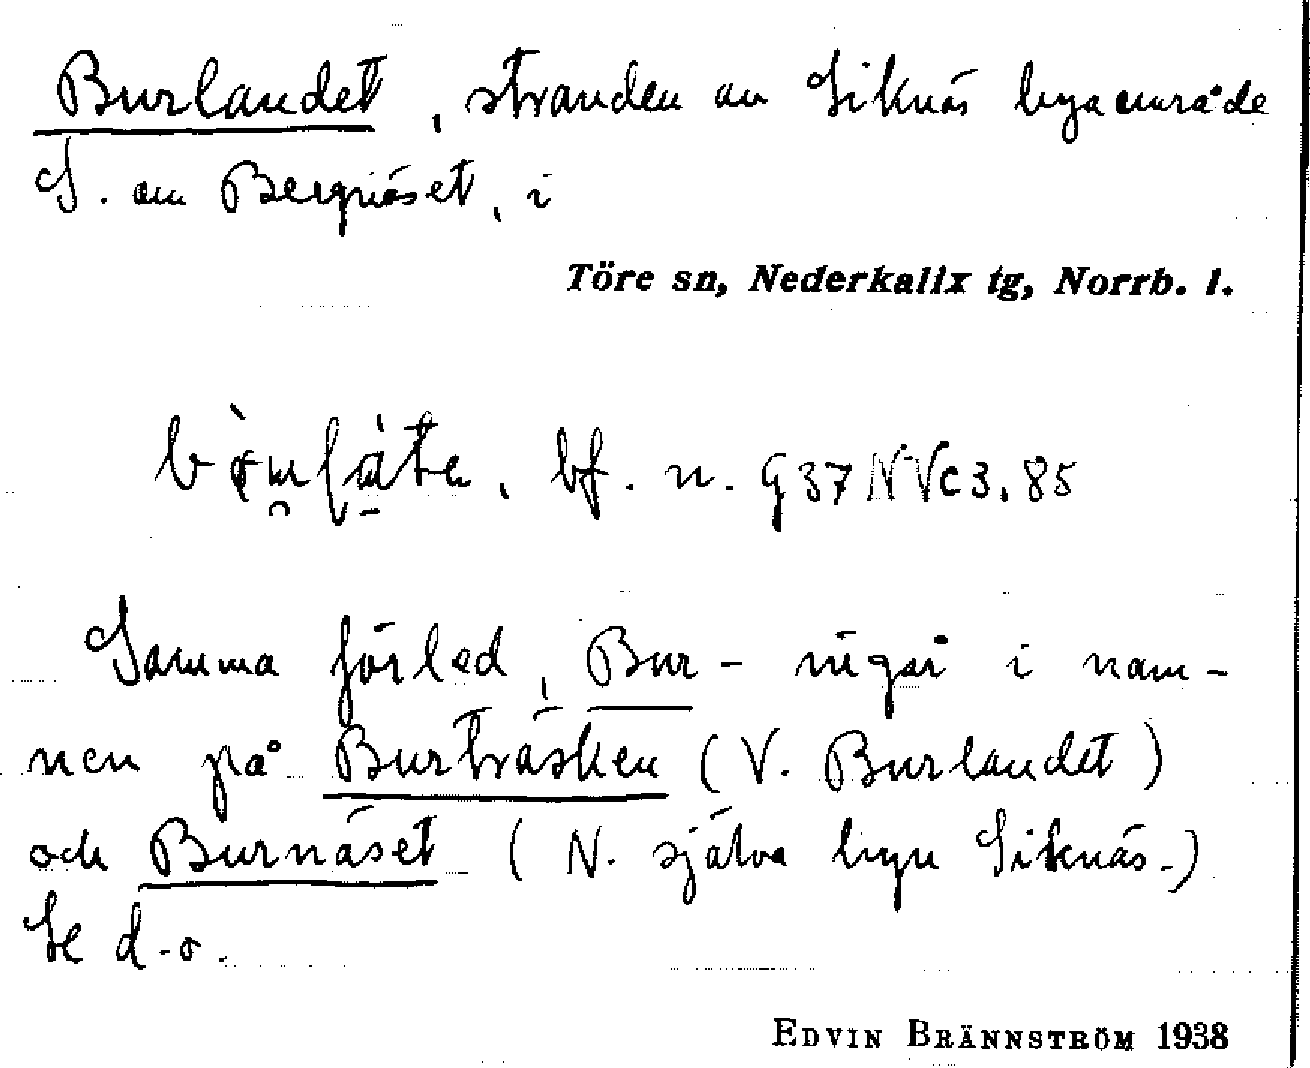 Burlandet, stranden av Siknäs byaområde
S. om Bergnäset, i
Töre sn, Nederkalix tg, Norrb. l.
bf. n. G37NVc3.85
Samma förled, Bur- ingår i nam-
nen på Burträsken (V. Burlandet)
och Burnäset (N. själva byn Siknäs.)
Se d.o.
EDVIN BRÄNNSTRÖM 1938